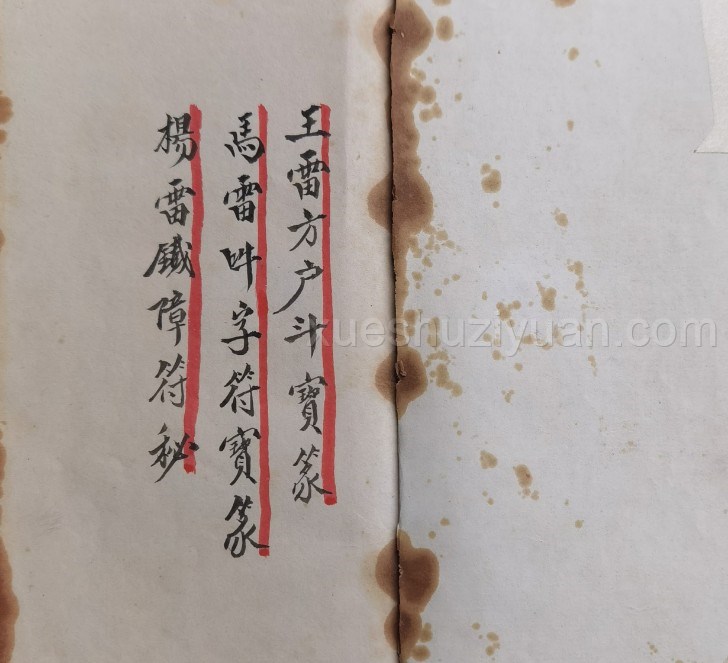 王雷方户斗寶篆
馬雷吽字符寶篆
楊雷鐵障符秘
xueshuziyuan.com